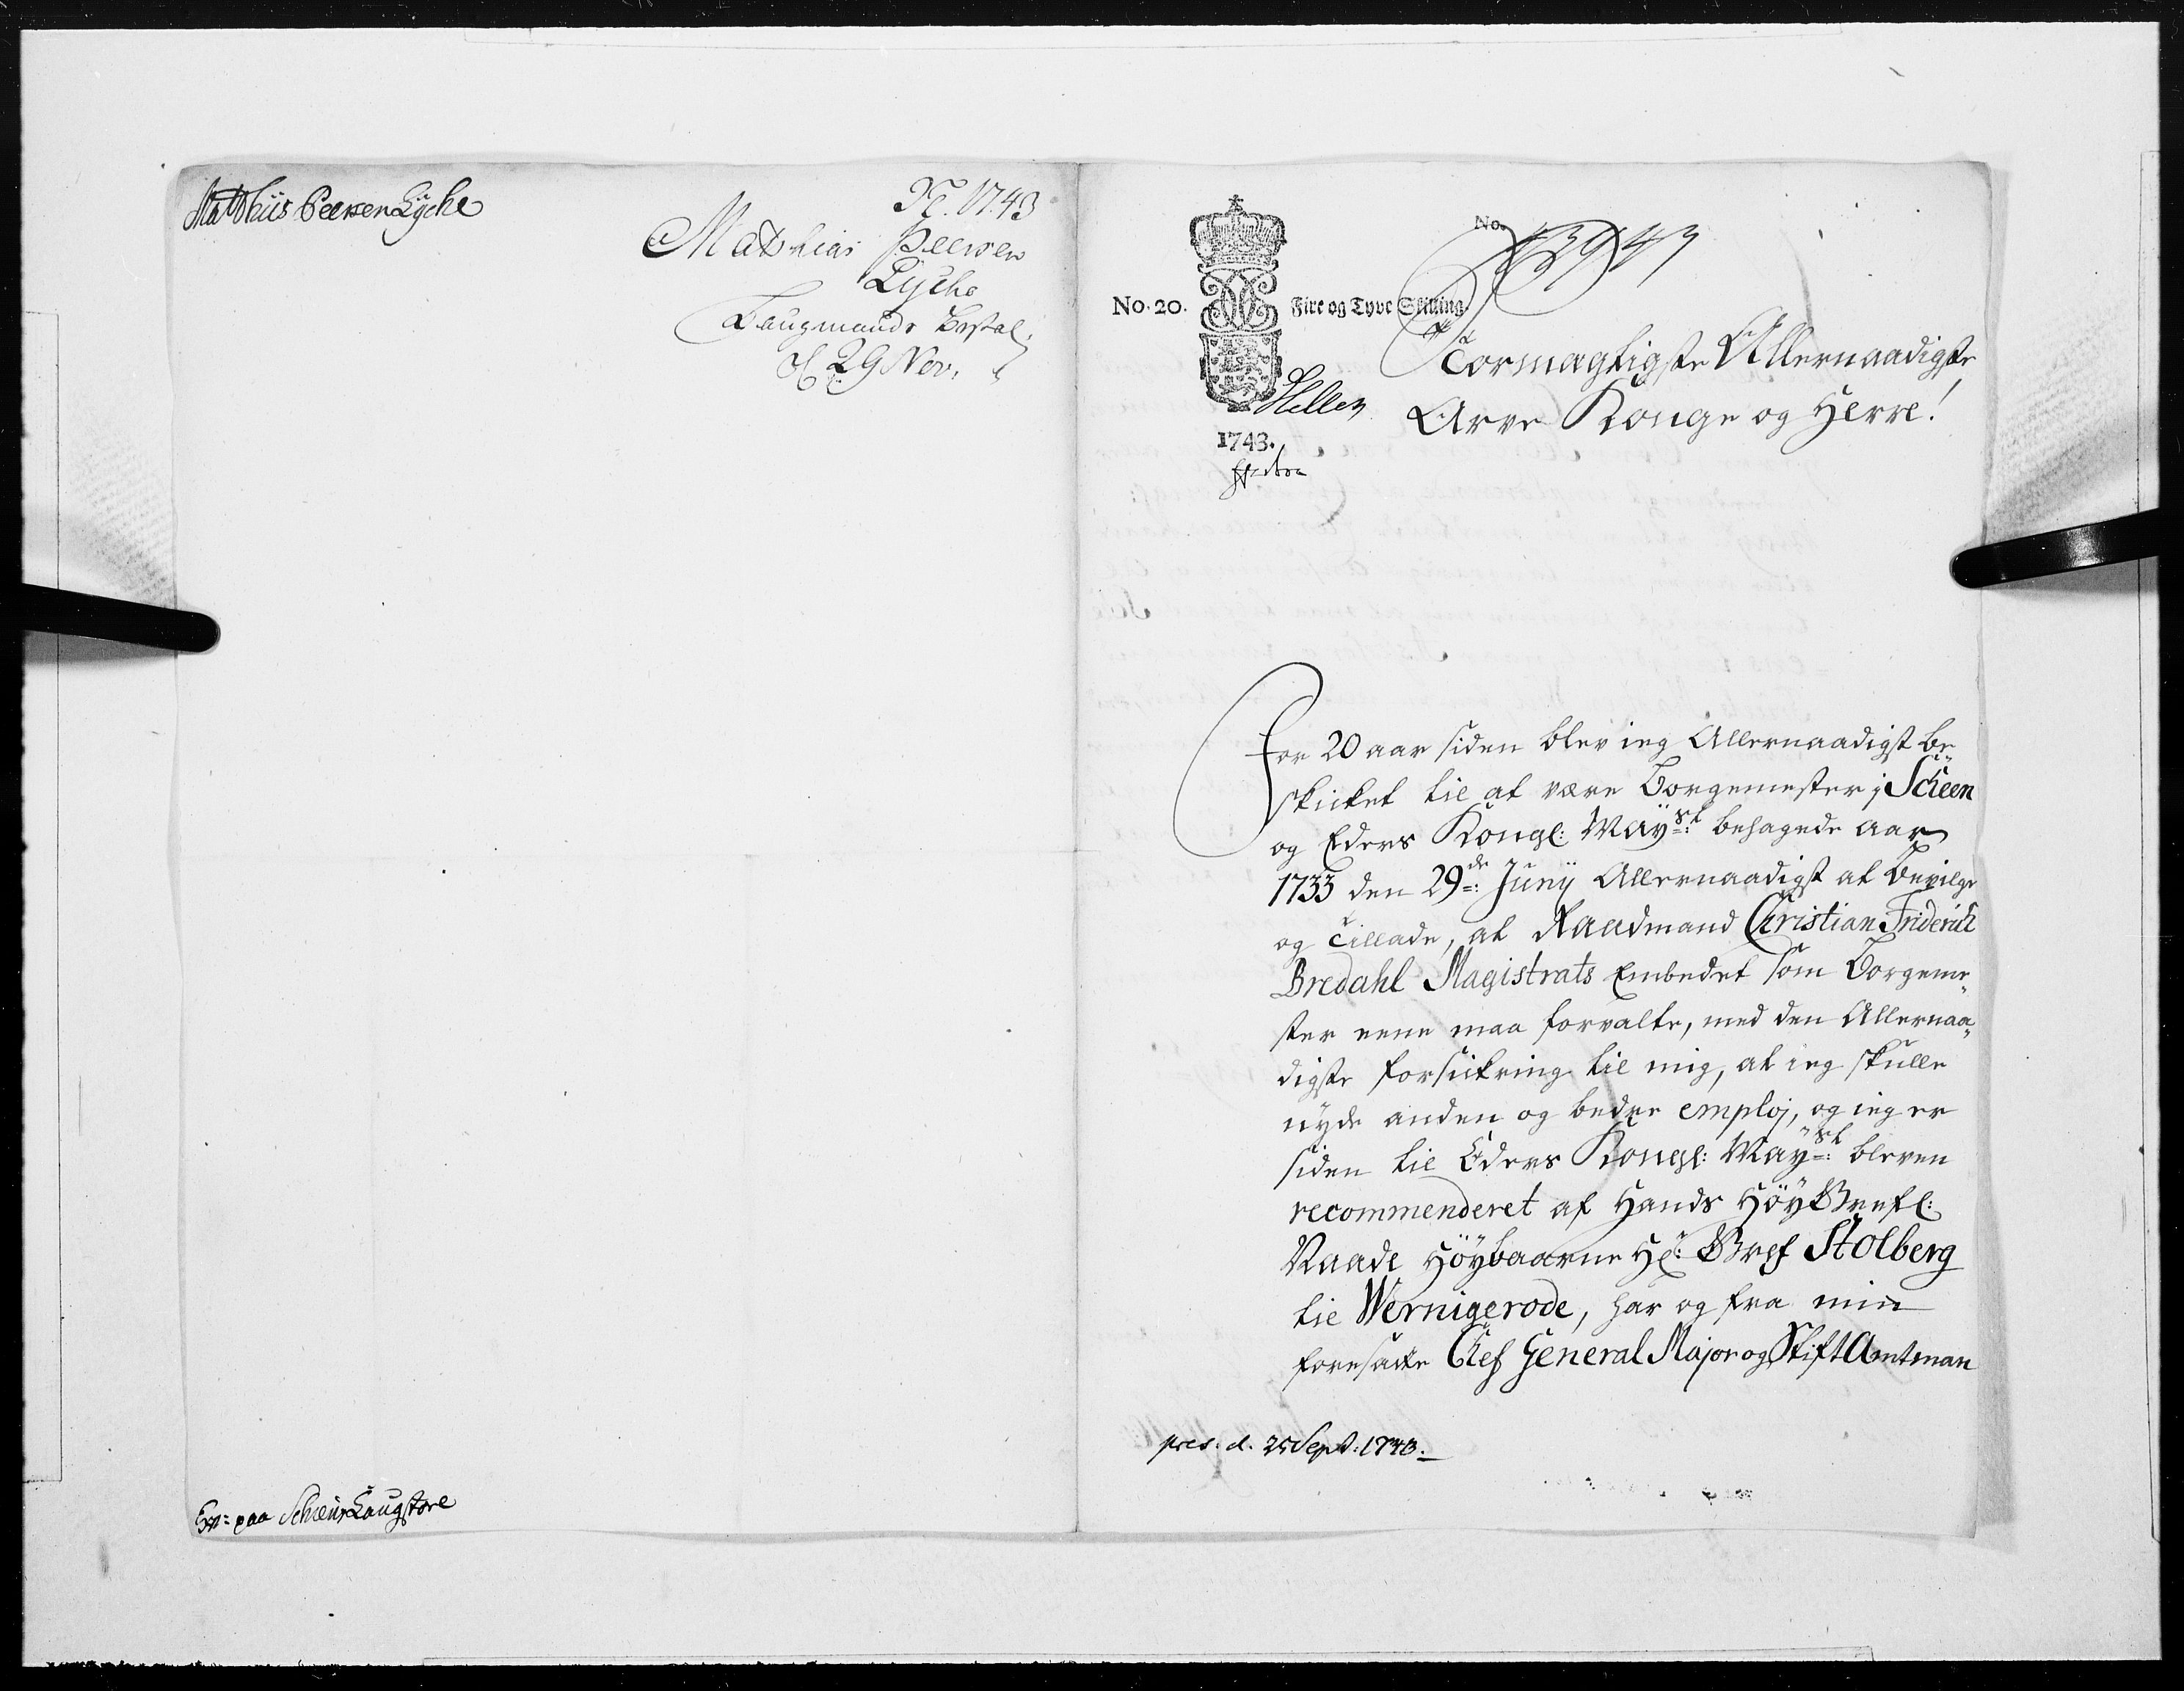 Matthiis Peersen Lyche
1743
Mathias Peersen
Lyche
Laugmands Bestal.
d 29 Nov.
Exp: paa Scheens Laugstoel
No. 20.
No.
Fire og Tyve Skilling.
1743.
Stormægtigste Allernaadigste
Arve Konge og Herre!
For 20 aar siden blev ieg Allernaadigst be„
skicket til at være Borgemester i Scheen
og Eders Kongl: Mayst: behagede aar
1733 den 29de: Junij Allernaadigst at bevilge
og tillade, at Raadmand Christian Friderich
Bredahl Magistrats Embedet som Borgeme„
ster eene maa forvalte, med den Allernaa„
digste forsickring til mig, at ieg skulle
nyde anden og bedre employ, og ieg er
siden til Eders Kongl: Mayst: bleven
recommenderet af Hands HöyGrefl:
Naade Höybaarne Hr: Gref Stolberg
til Wernigerode, har og fra min
foresatte Chef General Major og StiftAmtman
pres. d. 25 Sept: 1743.